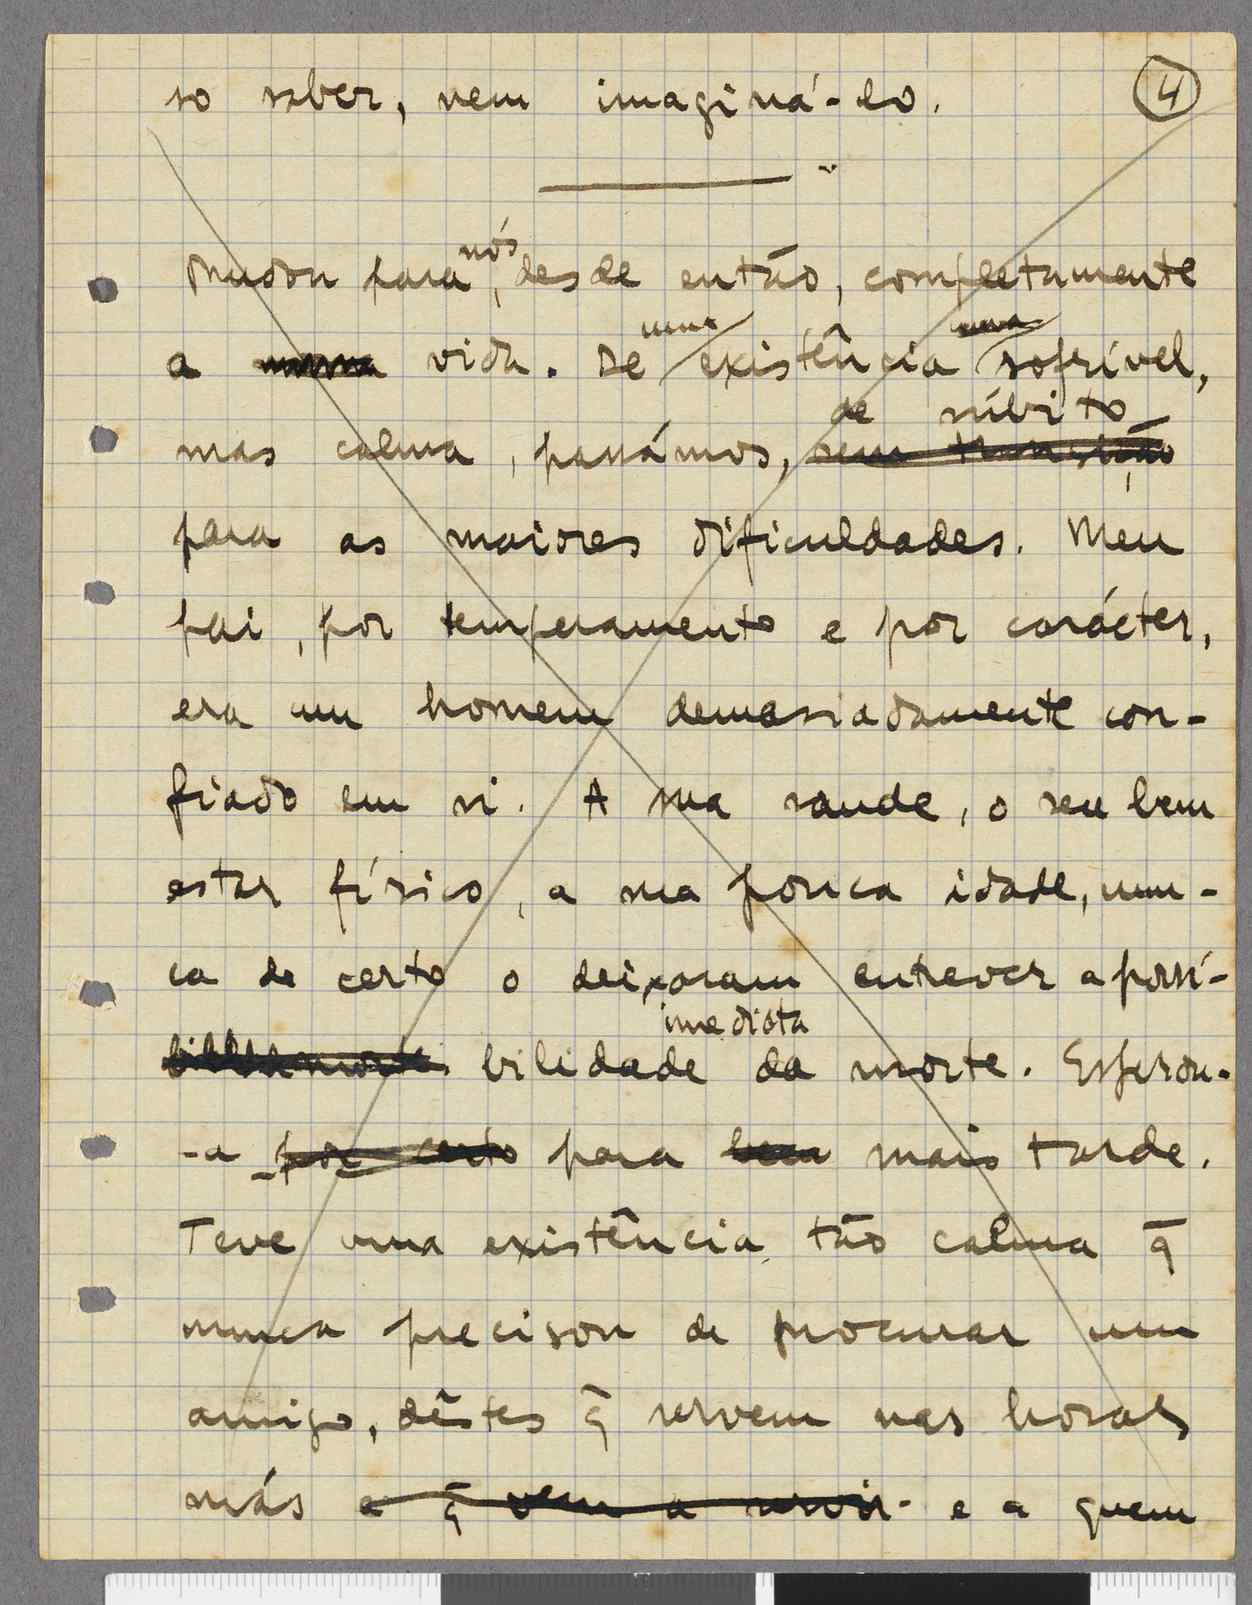 so saber, nem imaginá-lo.
4
nós
Mudou para, desde então, completamente
uma uma
a nossa vida. De existência sofrível,
de súbito
mas calma, passámos, sem transição
para as maiores dificuldades. Meu
pai, por temperamento e por carácter,
era um homem demasiadamente con-
fiado em si. A sua saude, o seu bem
estar físico, a sua pouca idade, nun-
ca de certo o deixaram entrever a possi-
imediata
bilidade da morte. Esperou-
-a por certo para bem mais tarde.
Teve uma existência tão calma q̄
nunca precisou de procurar um
amigo, dêstes q̄ servem nas horas
más e q̄ vem a servir- e a quem